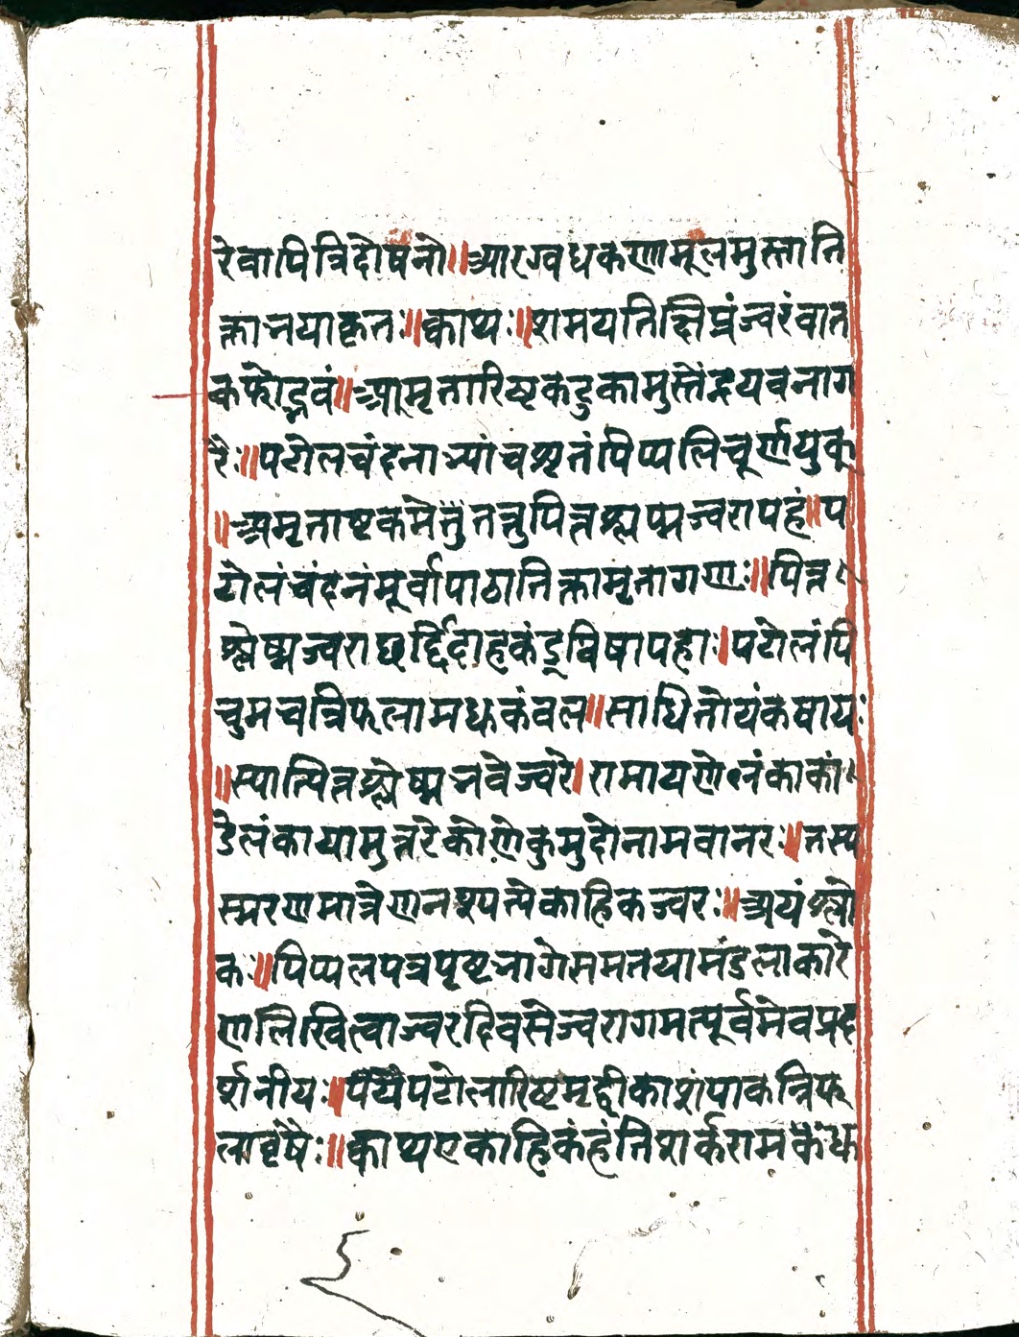 रेवापित्रिदोषनो॥आरग्वधकणमूलमुस्ताति
क्तानयाकृतः॥क्वाथः॥शमयतिक्षिप्रंज्वरंवात
कफोद्भवं॥आमृतारिष्टकटुकामुस्तेंद्रयवनाग
रैः॥पटोलचंदनाभ्यांचशृतंपिप्पलिचूर्णयुक्
॥अमृताष्टकमेत्तुतत्तुपित्तश्लेष्मज्वरापहं॥प
टोलंचंदनंमूर्वापाठातिक्तामृतागणः॥पित्त
श्लेष्मज्वराछर्द्दिदाहकंडूविषापहाः।पटोलंपि
चुमचत्रिफलामधकंवल॥साधितोयंकषायः
॥स्यात्पित्तश्लेष्मनवेज्वरे।रामायणेलंकाकां
डेलंकायामुत्तरेकोणेकुमुदोनामवानरः॥तस्य
स्मरणमात्रेणनश्यत्येकाहिकज्वरः॥अयंश्लो
कः॥पिप्पलपत्रपृष्टभागेसमतयामंडलाकारे
णलिखित्वाज्वरदिवसेज्वरागमत्पूर्वमेवप्रद
र्शनीयः॥पटोलारिष्टमृद्वीकाशंपाकत्रिफ
लावृषैः॥क्वाथएकाहिकंहंतिशर्करामकैंधक